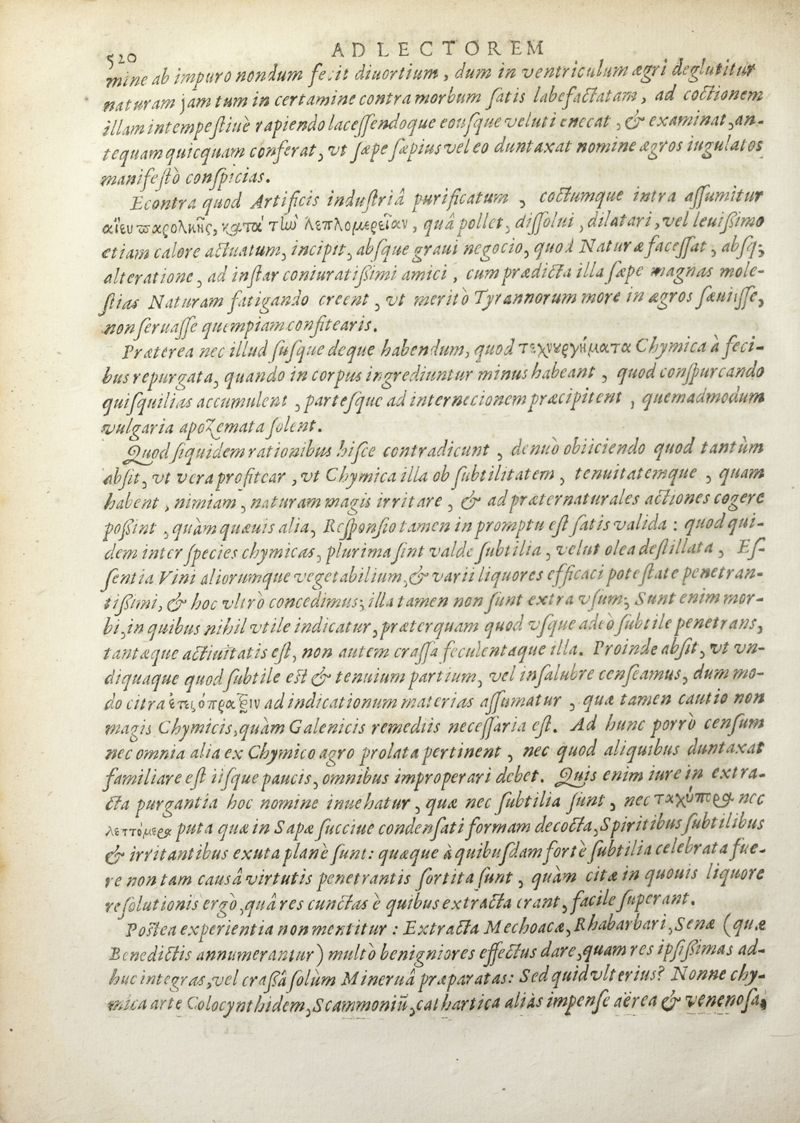 520
AD LECTOREM
mine ab impuro nondum fecit diuortium, dum in ventriculum ægri deglutitur
naturam jam tum in certamine contra morbum ſatis labefactatam, ad coctionem
illam intempeſtiuè rapiendo laceſſendoque eouſque veluti enecat, & examinat, an-
tequam quicquam conferat, vt ſæpe ſæpius vel eo duntaxat nomine ægros iugulatos
manifeſtò conſpicias.
Econtra quod Artificis induſtriâ purificatum, coctumque intra aſſumitur
κατὰ τὴν λεπτομερείαν, quâ pollet, diſſolui, dilatari, vel leuißimo
etiam calore actuatum, incipit, abſque graui negocio, quod Naturæ faceſſat, abſq;
alteratione, ad inſtar coniuratiſſimi amici, cum prædicta illa ſæpe magnas mole-
ſtias Naturam fatigando creent, vt meritò Tyrannorum more in ægros ſæuiiſſe,
non ſeruaſſe quempiam confitearis.
Præterea nec illud ſuſque deque habendum, quod τεχνουργήματα Chymica à feci-
bus repurgata, quando in corpus ingrediuntur minus habeant, quod conſpurcando
quiſquilias accumulent, parteſque ad internecionem præcipitent, quemadmodum
vulgaria apozemata ſolent.
Quod ſiquidem rationibus hiſce contradicunt, denuò obiiciendo quod tantùm
abſit, vt vera profitear, vt Chymica illa ob ſubtilitatem, tenuitatemque, quam
habent, nimiam, naturam magis irritare, & ad præternaturales actiones cogere
poßint, quàm quæuis alia, Reſponſio tamen in promptu eſt ſatis valida: quod qui-
dem inter ſpecies chymicas, plurima ſint valde ſubtilia, velut olea deſtillata, Eſ-
ſentia Vini aliorumque vegetabilium, & varii liquores efficaci poteſtate penetran-
tißimi, & hoc vltrò concedimus; illa tamen non ſunt extra vſum; Sunt enim mor-
bi, in quibus nihil vtile indicatur, præterquam quod vſque adeò ſubtile penetrans,
tantæque actiuitatis eſt, non autem craſſa feculentaque illa. Proinde abſit, vt vn-
diquaque quod ſubtile eſt & tenuium partium, vel inſalubre cenſeamus, dummo-
do citra ad indicationum materias aſſumatur, quæ tamen cautio non
magis Chymicis, quàm Galenicis remediis neceſſaria eſt. Ad hunc porrò cenſum
nec omnia alia ex Chymico agro prolata pertinent, nec quod aliquibus duntaxat
familiare eſt iiſque paucis, omnibus improperari debet. Quis enim iure in extra-
cta purgantia hoc nomine inuehatur, quæ nec ſubtilia ſunt, nec ταχύπορα nec
λεπτόμερα puta quæ in Sapæ ſucciue condenſati formam decocta, Spiritibus ſubtilibus
& irritantibus exuta planè ſunt: quæque à quibuſdam fortè ſubtilia celebrata fue-
re non tam causâ virtutis penetrantis ſortita ſunt, quàm citæ in quouis liquore
reſolutionis ergò, quâ res cunctas è quibus extracta erant, facile ſuperant.
Poſtea experientia non mentitur: Extracta Mechoacæ, Rhabarbari, Senæ (quæ
Benedictis annumerantur) multò benigniores effectus dare, quam res ipſißimas ad-
huc integras, vel craſſâ ſolùm Mineruâ præparatas: Sed quid vlterius? Nonne chy-
mica arte Colocynthidem, Scammoniū, cathartica aliàs impenſe aërea & venenoſa,